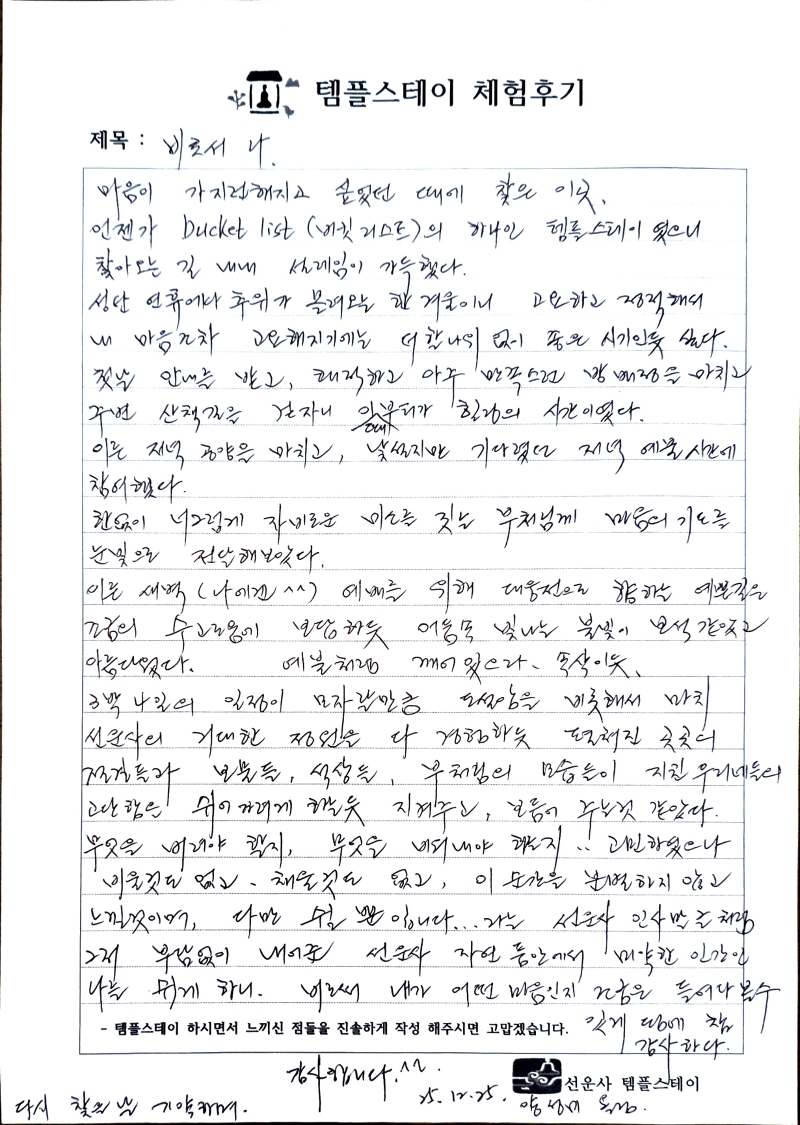 템플스테이 체험후기
제목 : 비로서 나.
마음이 가지런해지고 싶었던 때에 찾은 이곳.
언젠가 Bucket list (버킷리스트)의 하나인 템플스테이 였으니
찾아오는 길 내내 설레임이 가득했다.
성탄 연휴에다 추위가 몰려오는 한 겨울이니 고요하고 정적해서
내 마음조차 고요해지기에는 더할나위 없이 좋은 시기인듯 싶다.
첫날 안내를 받고, 쾌적하고 아주 만족스런 방 배정을 마치고
주변 산책길을 걷자니 힐링의 시간이였다.
이른 저녁 공양을 마치고, 낯설지만 기다렸던 저녁 예불시간에
참여했다.
한없이 너그럽게 자비로운 미소를 짓는 부처님께 마음의 기도를
눈빛으로 전달해보았다.
이른 새벽 (나에겐 ^^) 예배를 위해 대웅전으로 향하는 예쁜길은
조금의 수고로움에 보답하듯 어둠속 빛나는 불빛이 보석같았고
아름다웠다. 예불처럼 깨어있으라、속삭이듯、
3박 4일의 일정이 모자랄만큼 도솔암을 비롯해서 마치
선운사의 거대한 정원을 다 경험하듯 펼쳐진 곳곳의
보물들, 석상들, 부처님의 모습들이 지친 우리네들의
고단함을 쉬어가려게 하는듯 지켜주고, 보듬어 주는것 같았다.
무엇을 버려야 할지, 무엇을 비워내야 하는지 .. 고민하였으나
비울것도 없고、채울것도 없고, 이 순간을 분별하지 않고
느낄것이며, 다만 쉴 뿐입니다... 라는 선운사 인사말 처럼
그저 부담없이 내어준 선운사 자연 품안에서 미약한 인간인
나를 쉬게 하니. 비로써 내가 어떤 마음인지 조금은 들여다 볼수
있게 됨에 참
감사하다.
- 템플스테이 하시면서 느끼신 점들을 진솔하게 작성 해주시면 고맙겠습니다.
감사합니다.^^.
25.12.25.
선운사 템플스테이
다시 찾을날 기약하며.